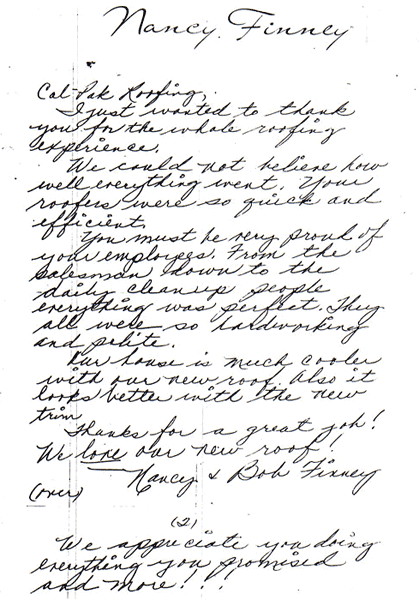 Nancy Finney
Cal-Pak Roofing,
I just wanted to thank
you for the whole roofing
experience.
We could not believe how
well everything went. Your
roofers were so quick and
efficient.
You must be very proud of
your employees. From the
salesman down to the
daily cleanup people
everything was perfect. They
all were so hardworking
and polite.
Our house is much cooler
with our new roof. Also it
looks better with the new
trim
Thanks for a great job!
We love our new roof!
Nancy & Bob Finney
(over)
(2)
We appreciate you doing
everything you promised
and more!!!